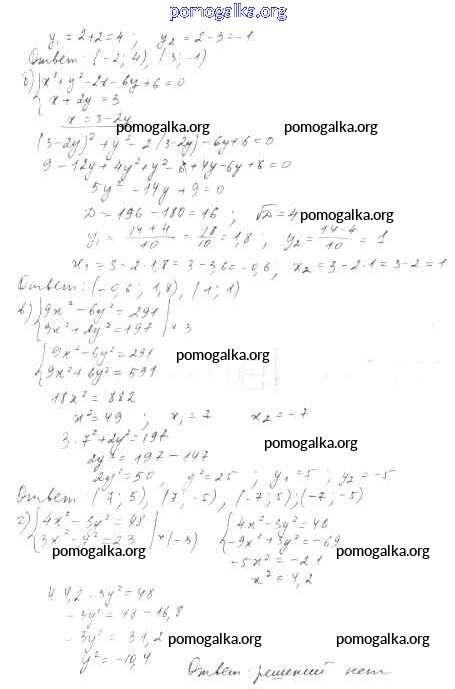 pomogalka.org
y₁ = 2+2 = 4 ; y₂ = 2-3 = -1
Ответ: (-2; 4), (3; -1)
б) { x² + y² - 2x - 6y + 6 = 0
x + 2y = 3
x = 3 - 2y
pomogalka.org pomogalka.org
(3-2y)² + y² - 2(3-2y) - 6y + 6 = 0
9 - 12y + 4y² + y² - 6 + 4y - 6y + 6 = 0
5y² - 14y + 9 = 0
D = 196 - 180 = 16 ; √D = 4 pomogalka.org
y₁ = (14+4)/10 = 18/10 = 1,8 ; y₂ = (14-4)/10 = 1
x₁ = 3 - 2·1,8 = 3 - 3,6 = -0,6 ; x₂ = 3 - 2·1 = 3-2 = 1
Ответ: (-0,6; 1,8), (1; 1)
в) { 9x² - 6y² = 291
3x² + 2y² = 197 | × 3
{ 9x² - 6y² = 291 pomogalka.org
9x² + 6y² = 591
18x² = 882
x² = 49 ; x₁ = 7 x₂ = -7
3·7² + 2y² = 197
pomogalka.org
2y² = 197 - 147
2y² = 50, y² = 25 ; y₁ = 5 ; y₂ = -5
Ответ (7; 5), (7; -5), (-7; 5); (-7; -5)
г) { 4x² - 3y² = 48 { 4x² - 3y² = 48
3x² - y² = 23 | × (-3) -9x² + 3y² = -69
pomogalka.org pomogalka.org
-5x² = -21
x² = 4,2
4·4,2 - 3y² = 48
-3y² = 48 - 16,8
-3y² = 31,2 pomogalka.org pomogalka.org
y² = -10,4
Ответ: решений нет